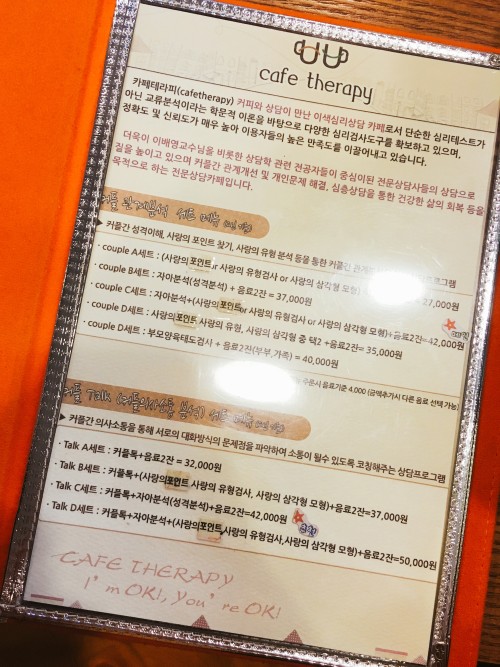 cafe therapy
카페테라피(cafetherapy) 커피와 상담이 만난 이색심리상담 카페로서 단순한 심리테스트가
아닌 교류분석이라는 학문적 이론을 바탕으로 다양한 심리검사도구를 확보하고 있으며,
정확도 및 신뢰도가 매우 높아 이용자들의 높은 만족도를 이끌어내고 있습니다.
더욱이 이배영교수님을 비롯한 상담학 관련 전공자들이 중심이된 전문상담사들의 상담으로
질을 높이고 있으며 커플간 관계개선 및 개인문제 해결, 심층상담을 통한 건강한 삶의 회복 등을
목적으로 하는 전문상담카페입니다.
커플 관계분석 세트 메뉴
▶ 커플간 성격이해, 사랑의 포인트 찾기, 사랑의 유형 분석 등을 통한 커플간 관계 프로그램
· couple A세트 : (사랑의포인트or 사랑의 유형검사 or 사랑의 삼각형 모형) 27,000원
· couple B세트 : 자아분석(성격분석) + 음료2잔 = 37,000원
· couple C세트 : 자아분석+(사랑의포인트or 사랑의 유형검사 or 사랑의 삼각형 모형)+음료2잔= 42,000원
· couple D세트 : 사랑의포인트 사랑의 유형, 사랑의 삼각형 중 택2 +음료2잔= 35,000원
· couple D세트 : 부모양육태도검사 + 음료2잔(부부,가족) = 40,000원
주문시 음료기준 4,000 (금액추가시 다른 음료 선택 가능)
커플 Talk (커플의사소통 분석) 세트 메뉴
▶ 커플간 의사소통을 통해 서로의 대화방식의 문제점을 파악하여 소통이 될수 있도록 코칭해주는 상담프로그램
· Talk A세트 : 커플톡+음료2잔 = 32,000원
· Talk B세트 : 커플톡+(사랑의포인트 사랑의 유형검사, 사랑의 삼각형 모형)+음료2잔=37,000원
· Talk C세트 : 커플톡+자아분석(성격분석)+음료2잔=42,000원
· Talk D세트 : 커플톡+자아분석+(사랑의포인트사랑의 유형검사,사랑의 삼각형 모형)+음료2잔=50,000원
CAFE THERAPY
I'm OK!, You're OK!